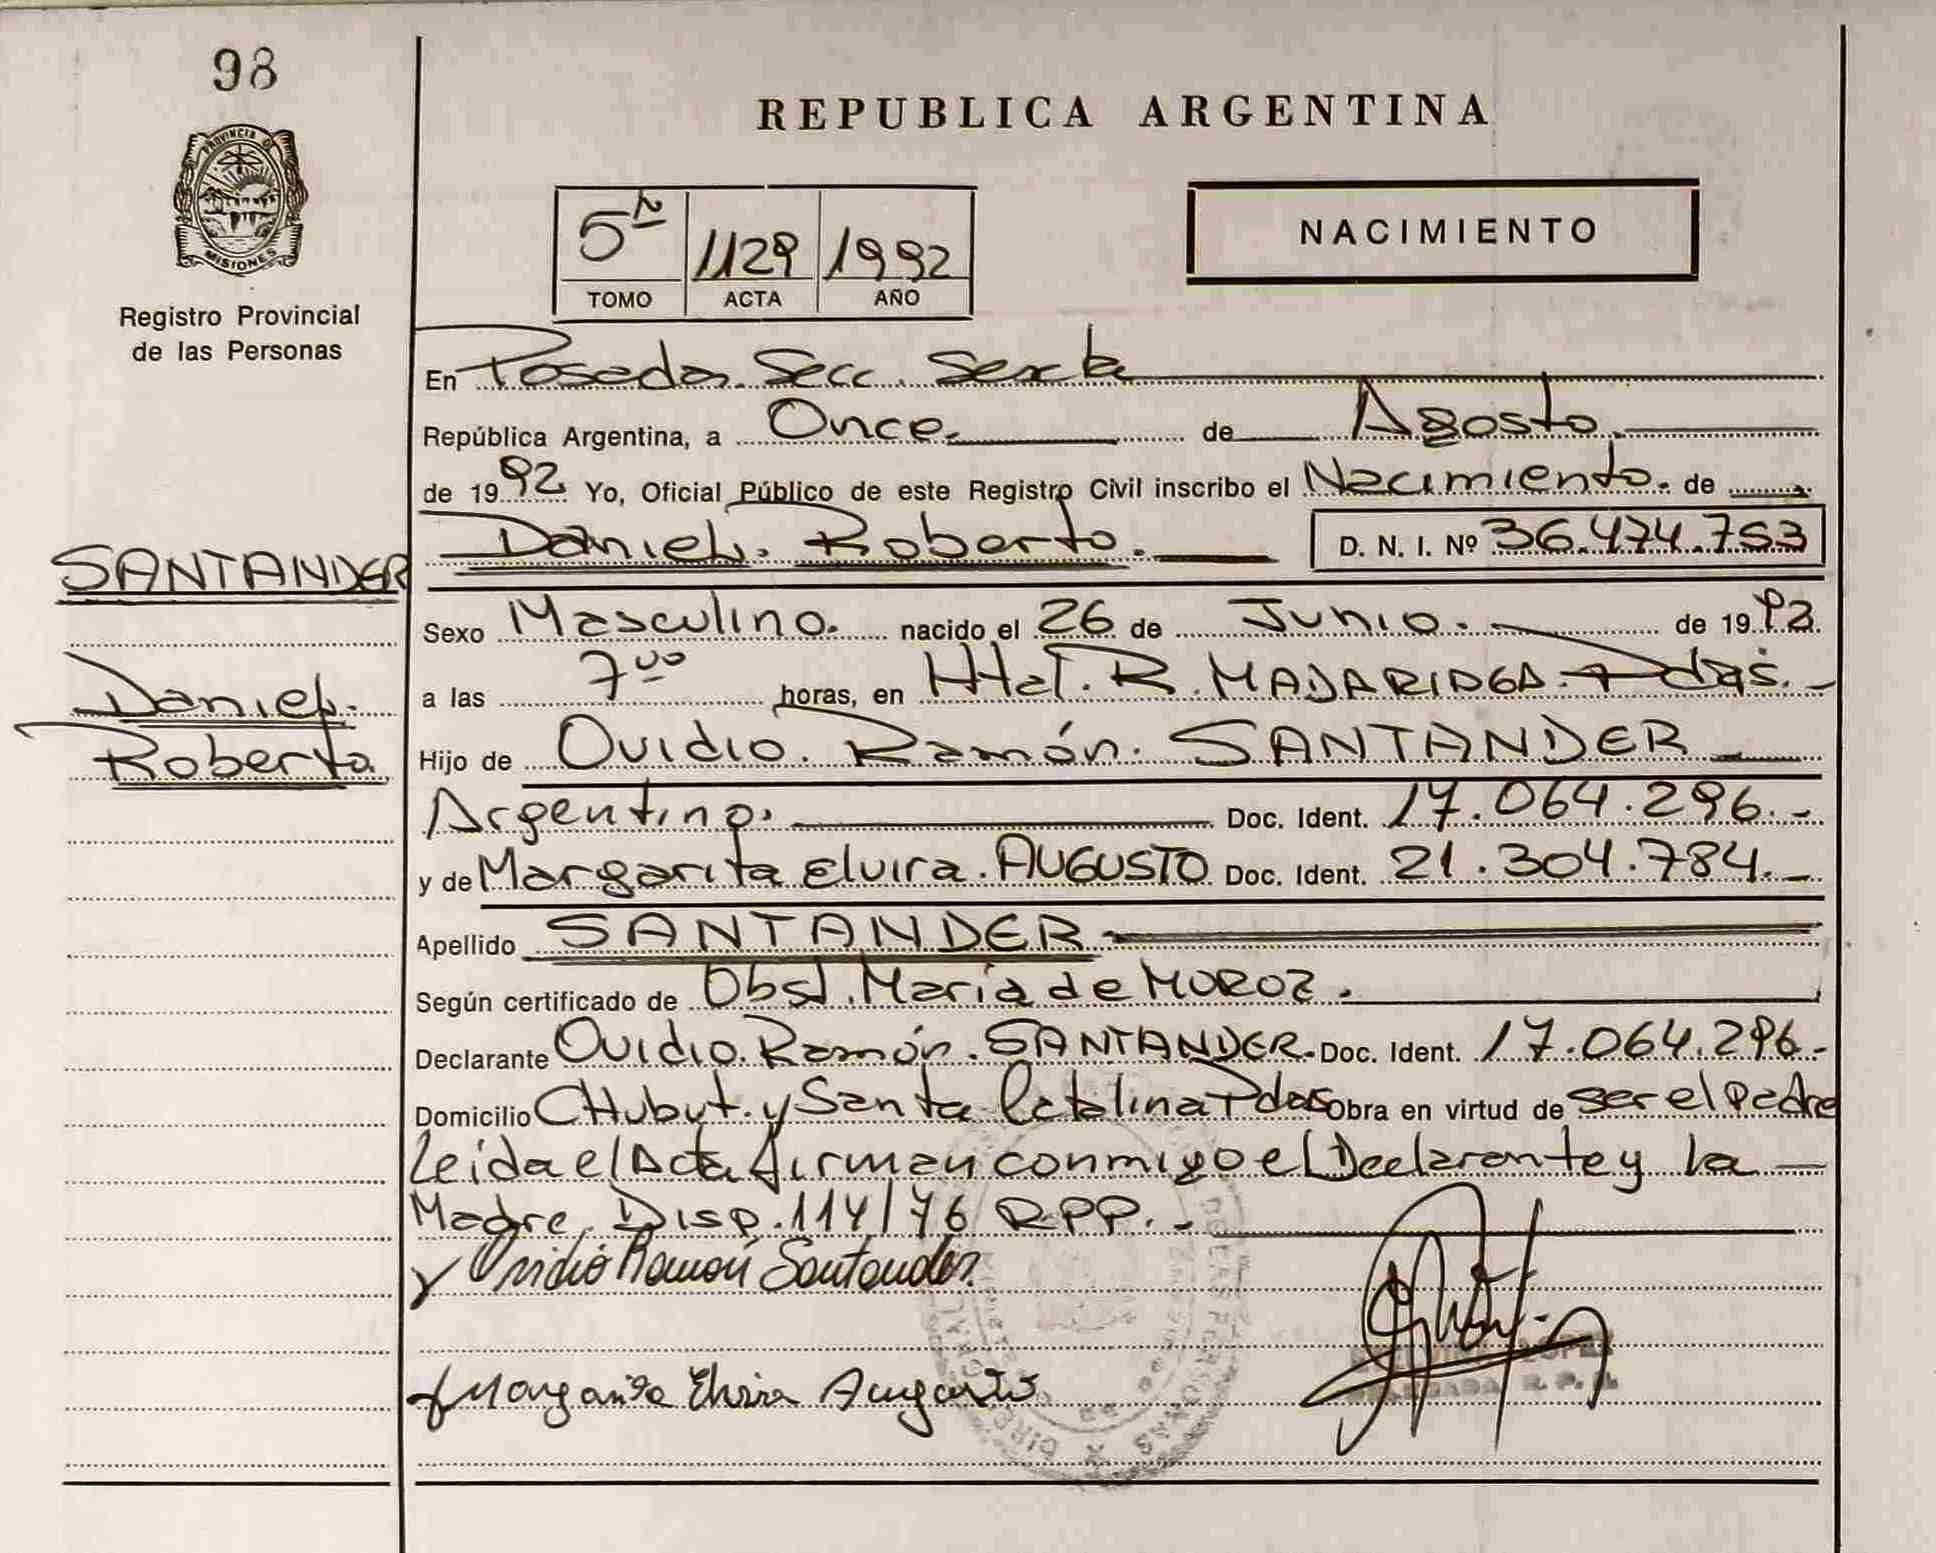 98
PROVINCIA DE
MISIONES
Registro Provincial
de las Personas
SANTANDER
Daniel
Roberto
REPUBLICA ARGENTINA
5º 1129 1992
TOMO ACTA AÑO
NACIMIENTO
En Posadas. Secc. Sexta
República Argentina, a Once de Agosto
de 1992 Yo, Oficial Público de este Registro Civil inscribo el Nacimiento. de
Daniel. Roberto. D. N. I. Nº 36.474.753
Sexo Masculino. nacido el 26 de Junio. de 1992.
a las 7 00 horas, en Htal. R. MADARIAGA. Pdas.
Hijo de Ovidio. Ramón. SANTANDER
Argentino. Doc. Ident. 17.064.296.-
y de Margarita Elvira. AUGUSTO Doc. Ident. 21.304.784.-
Apellido SANTANDER
Según certificado de Obst. María de MOROZ.
Declarante Ovidio. Ramón. SANTANDER. Doc. Ident. 17.064.296.-
Domicilio CHubut. y Santa Catalina Pdas Obra en virtud de ser el Padre
Leida el Acta firman conmigo el Declarante y la
Madre. Disp. 114/76 R.P.P.-
Ovidio Ramón Santander
Margarita Elvira Augusto